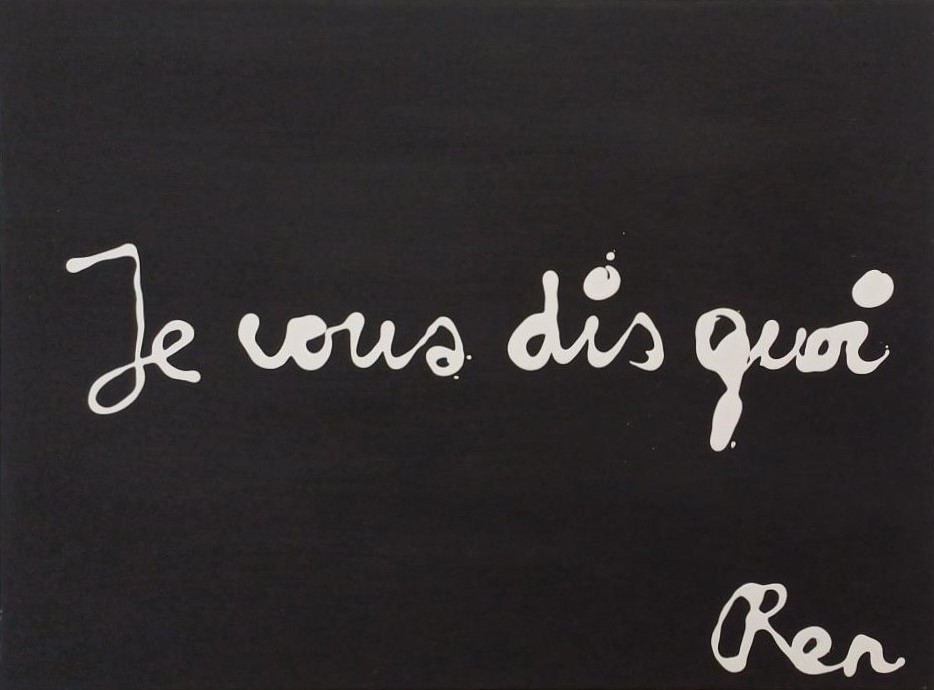 Je vous dis quoi
Ren